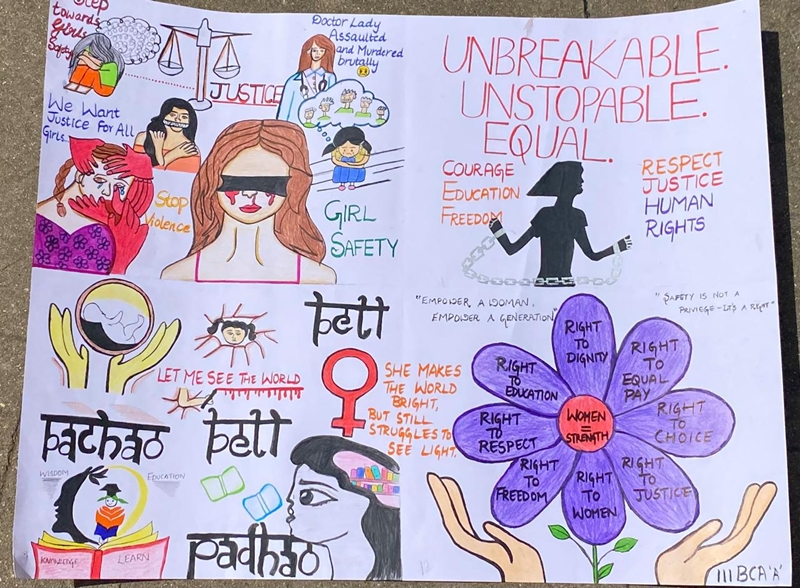 Step
towards
Girls
Safety
JUSTICE
Doctor Lady
Assaulted
and Murdered
brutally
We Want
Justice For All
Girls.
Stop
Violence
GIRL
SAFETY
UNBREAKABLE.
UNSTOPABLE.
EQUAL.
COURAGE
EDUCATION
FREEDOM
RESPECT
JUSTICE
HUMAN
RIGHTS
LET ME SEE THE WORLD
beti
bachao
beti
padhao
SHE MAKES
THE WORLD
BRIGHT,
BUT STILL
STRUGGLES TO
SEE LIGHT.
WISDOM
EDUCATION
KNOWLEDGE
LEARN
"EMPOWER A WOMAN,
EMPOWER A GENERATION"
"SAFETY IS NOT A
PRIVIEGE-IT'S A RIGHT"
RIGHT
TO
DIGNITY
RIGHT
TO
EQUAL
PAY
RIGHT
TO
CHOICE
RIGHT
TO
JUSTICE
RIGHT
TO
WOMEN
RIGHT
TO
FREEDOM
RIGHT
TO
RESPECT
RIGHT
TO
EDUCATION
WOMEN
=
STRENGTH
III BCA 'A'